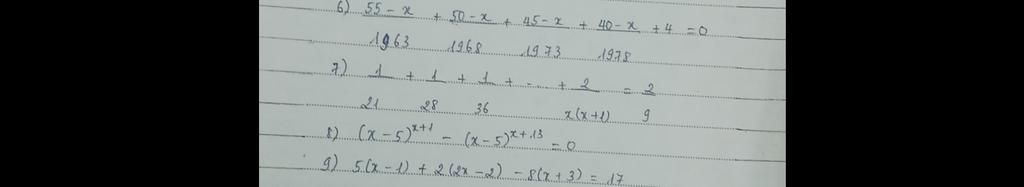 6) 55 - x + 50 - x + 45 - x + 40 - x + 4 = 0
1963 1968 1973 1978
7) 1 + 1 + 1 + ... + 2 = 2
21 28 36 x(x+1) 9
8) (x - 5)^{x+1} - (x - 5)^{x+13} = 0
9) 5(x - 1) + 2(2x - 2) - 8(x + 3) = 17